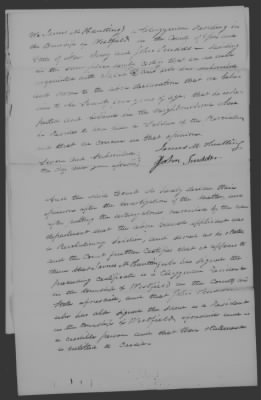 We James M Huntting a Clergyman residing in
the Township of Westfield in the County of Essex and
State of New Jersey and John Scudder residing
in the same
acquainted with who has subscribed
and sworn to the above declaration that we believe
him to be years of age, that he is
reputed and believed in the neighbourhood where
he resides to have been a Soldier of the Revolution
and that we concur in that opinion
Sworn and Subscribed
the day and year aforesaid
James M Huntting
John Scudder
And the said Court do hereby declare their
opinion after the investigation of the matter, and
after putting the interrogatories prescribed by the war
department that the above named applicant was
a Revolutionary Soldier, and served as he states
and the Court further certifies that it appears to
them that James M Huntting who has signed the
preceding certificate is a Clergyman resident
in the township of Westfield in the County and
State aforesaid, and that John Scudder
who has also signed the same is a Resident
in the township of Westfield aforesaid and is
a credible person and that their statement
is entitled to Credit